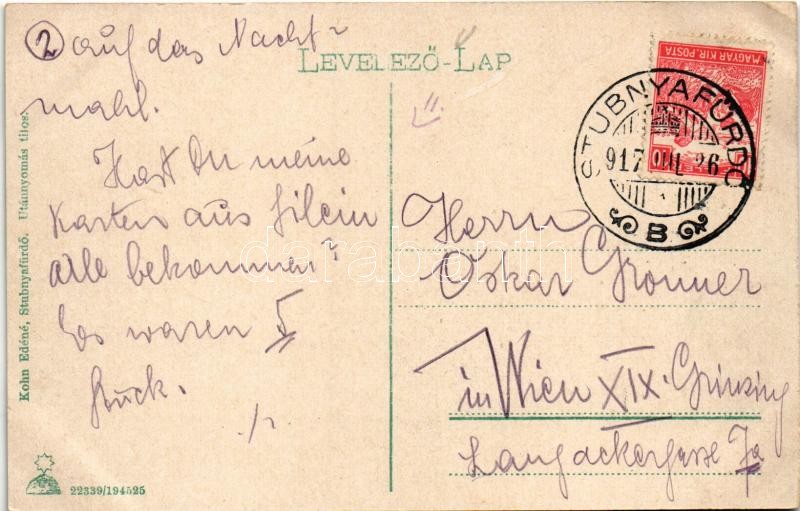 ② auf das Nacht-
mahl.
Hast Du meine
Karten aus Silein
alle bekommen?
Es waren 5
Stück.
./.
LEVELEZŐ-LAP
MAGYAR KIR. POSTA
10
STUBNYAFÜRDŐ
917 JUL 26
B
Herrn
Oskar Gronner
in Wien XIX. Grinzing
Langackergasse 7a
Kohn Edéné, Stubnyafürdő. Utánnyomás tilos.
22339/194525
darabanth